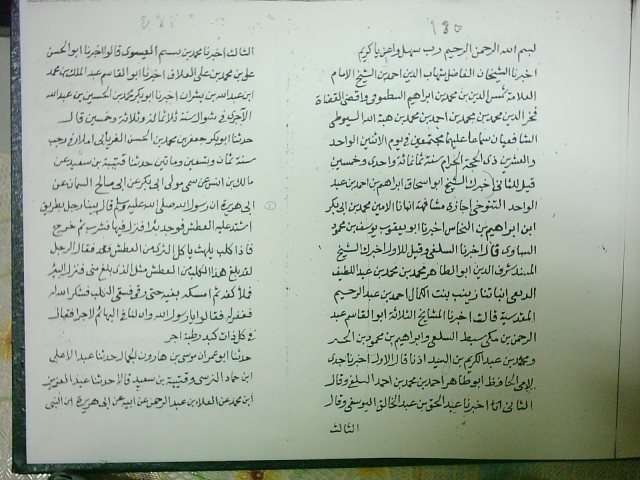 ١٨٥
لبسم الله الرحمن الرحيم رب سهل واعن يا كريم
اخبرنا الشيخان الفاضل شهاب الدين احمد بن الشيخ الامام
العلامة شمس الدين بن محمد بن ابراهيم السطوى واقضى القضاة
فخر الدين محمد بن محمد بن احمد بن محمد بن هبة الله السيوطى
الشافعيان سماعا عليهما مجتمعين فى يوم الاثنين الواحد
والعشرين ذى الحجة الحرام سنة ثمانمائة واحدى وخمسين
قيل للثانى اخبرك الشيخ ابو اسحاق ابراهيم بن احمد بن عبد
الواحد التنوخى اجازة مشافهة انبانا الامين محمد بن ابى بكر
ابن ابراهيم بن النحاس اخبرنا ابو يعقوب يوسف بن محمود
الساوى قال اخبرنا السلفى وقيل للاول اخبرك الشيخ
المسند شرف الدين ابو الطاهر محمد بن محمد بن عبد اللطيف
الربعى انباتنا زينب بنت الكمال احمد بن عبد الرحيم
المقدسية قالت اخبرنا المشايخ الثلاثة ابو القاسم عبد
الرحمن بن مكى سبط السلفى وابراهيم بن محمود بن الخير
ومحمد بن عبد الكريم بن السيد اذنا قال الاول اخبرنا جدى
لامى الحافظ ابو طاهر احمد بن محمد بن احمد السلفى وقال
الثانى انا اخبرنا عبد الحق بن عبد الخالق اليوسفى وقال
الثالث
الثالث اخبرنا محمد بن نسيم العيسوى قالوا اخبرنا ابو الحسن
على بن محمد بن على العلاف اخبرنا ابو القاسم عبد الملك بن محمد
ابن عبد الله بن بشران اخبرنا ابو بكر محمد بن الحسين بن عبد الله
الآجرى فى شوال سنة ثلاثمائة وثلاثة وخمسين قال
حدثنا ابو بكر جعفر بن محمد بن الحسن الفريابى املا فى رجب
سنة ثمان وتسعين وماتين حدثنا قتيبة بن سعيد عن
مالك بن انس عن سمى مولى ابى بكر عن ابى صالح السمان عن
ابى هريرة ان رسول الله صلى الله عليه وسلم قال بينما رجل بطريق
اشتد عليه العطش فوجد بئرا فنزل فيها فشرب ثم خرج
فاذا كلب يلهث ياكل الثرى من العطش فقال الرجل
لقد بلغ هذا الكلب من العطش مثل الذى بلغ منى فنزل البئر
فملأ خفه ثم امسكه بفيه حتى رقى فسقى الكلب فشكر الله له
فغفر له فقالوا يا رسول الله وان لنا فى البهائم لاجرا فقال
فى كل ذات كبد رطبة اجر
حدثنا ابو عمران موسى بن هارون الجمال حدثنا عبد الاعلى
ابن حماد النرسى وقتيبة بن سعيد قالا حدثنا عبد العزيز
ابن محمد عن العلا بن عبد الرحمن عن ابيه عن ابى هريرة ان النبى